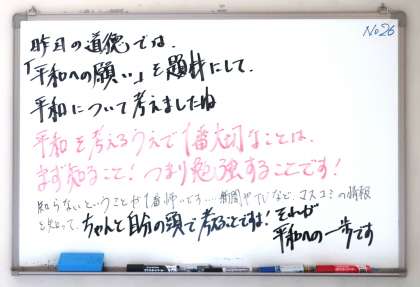 No26
昨日の道徳では、
「平和への願い」を題材にして、
平和について考えましたね
平和を考えるうえで1番大切なことは、
まず知ること！つまり勉強することです！
知らないということが1番怖いです…新聞やTVなど、マスコミの情報
を知って、ちゃんと自分の頭で考えることですよ！それが
平和への一歩です